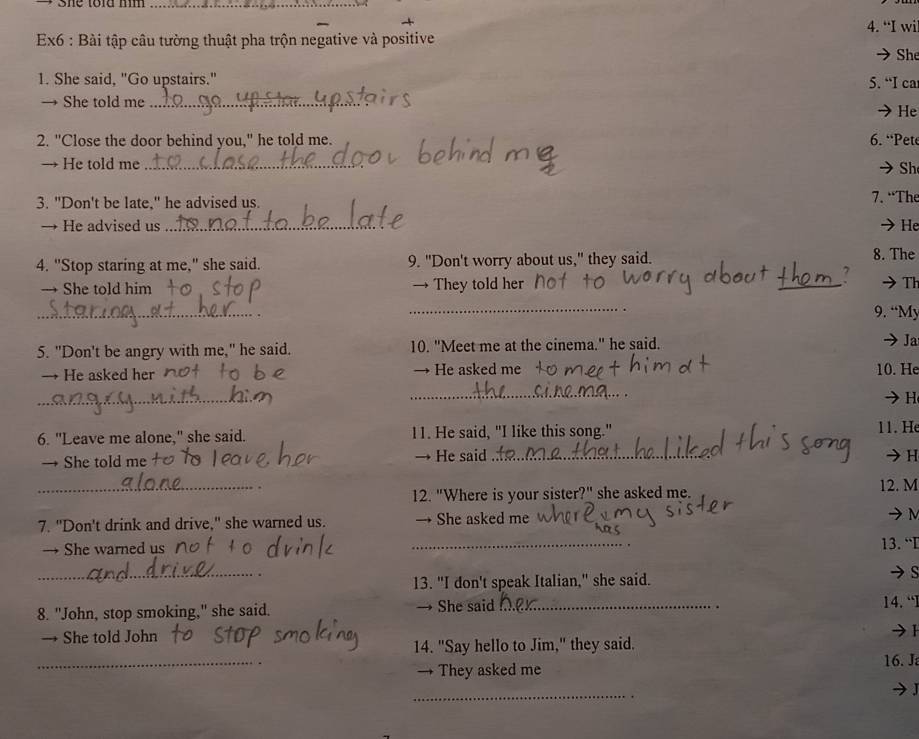 → She told him
Ex6 : Bài tập câu tường thuật pha trộn negative và positive
1. She said, "Go upstairs."
→ She told me to go upstairs
2. "Close the door behind you," he told me.
→ He told me to close the door behind me
3. "Don't be late," he advised us.
→ He advised us not to be late
4. "Stop staring at me," she said.
→ She told him to stop
staring at her.
5. "Don't be angry with me," he said.
→ He asked her not to be
angry with him
6. "Leave me alone," she said.
→ She told me to leave her
alone.
7. "Don't drink and drive," she warned us.
→ She warned us not to drink
and drive.
8. "John, stop smoking," she said.
→ She told John to stop smoking
9. "Don't worry about us," they said.
→ They told her not to worry about them?
10. "Meet me at the cinema." he said.
→ He asked me to meet him at
the cinema.
11. He said, "I like this song."
→ He said to me that he liked this song
12. "Where is your sister?" she asked me.
→ She asked me where my sister
has
13. "I don't speak Italian," she said.
→ She said her
14. "Say hello to Jim," they said.
→ They asked me
4. “I wi
→ She
5. “I ca
→ He
6. “Pete
→ Sh
7. “The
→ He
8. The
→ Th
9. “My
→ Ja
10. He
→ H
11. He
→ H
12. M
→ M
13. “I
→ S
14. “I
→
16. Ja
→ J